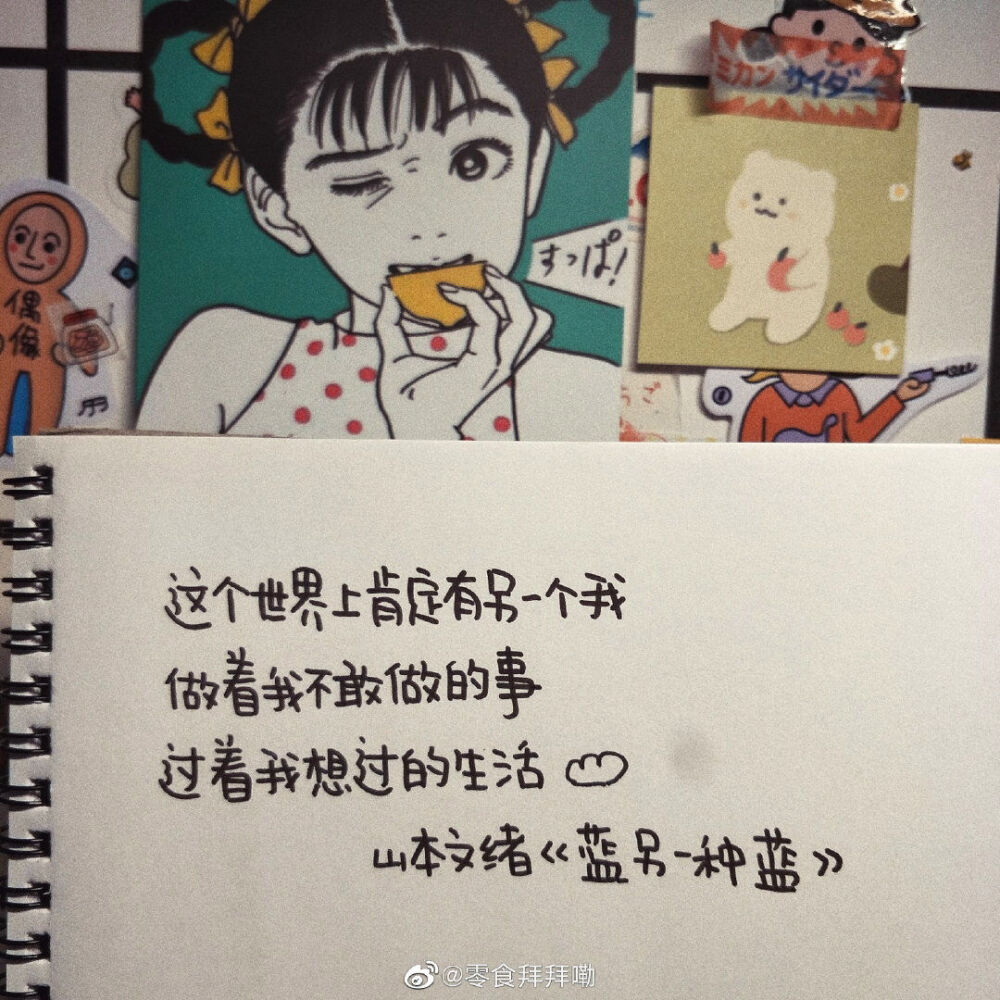 ミカンサイダー
すっぱ!
偶
像
这个世界上肯定有另一个我
做着我不敢做的事
过着我想过的生活
山本文绪《蓝另一种蓝》
@零食拜拜嘞